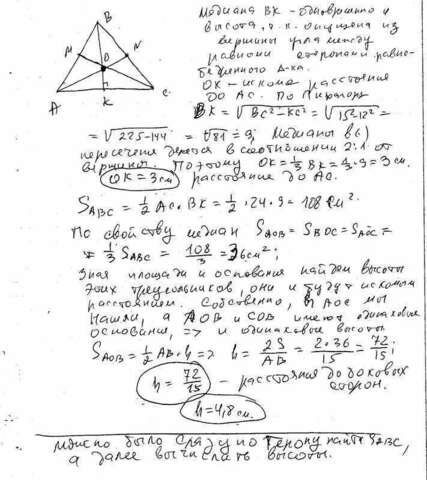 B
M
N
O
A
K
C
Медиана BK - одновременно и
высота, т.к. опущена из
вершины угла между
равными сторонами равно-
бедренного Δ-ка.
OK - искомое расстояние
до AC. По Пифагору
BK = √BC²-KC² = √15²-12² =
= √225-144 = √81 = 9; Медианы в (·)
пересечения делятся в соотношении 2:1 от
вершины. Поэтому OK = 1/3 BK = 1/3 · 9 = 3 см.
OK = 3 см расстояние до AC.
S ABC = 1/2 AC · BK = 1/2 · 24 · 9 = 108 см².
По свойству медиан S AOB = S BOC = S AOC =
= 1/3 S ABC = 108/3 = 36 см²;
Зная площади и основания найдем высоты
этих треугольников, они и будут искомым
расстоянием. Собственно, h AOC мы
нашли, а AOB и COB имеют одинаковые
основание, => и одинаковые высоты
S AOB = 1/2 AB · h => h = 2S/AB = 2·36/15 = 72/15;
h = 72/15 - расстояния до боковых
сторон.
h = 4,8 см.
можно было сразу по Герону найти S ABC,
а далее вычислять высоты.